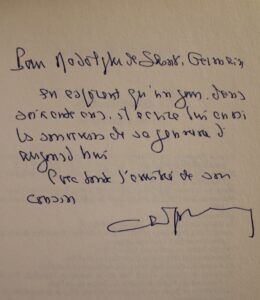 Pour Rodolphe de Saint-Germain
en espérant qu'un jour, dans
soixante ans, il écrive lui aussi
les souvenirs de sa jeunesse d'
aujourd'hui
Avec toute l'amitié de son
cousin